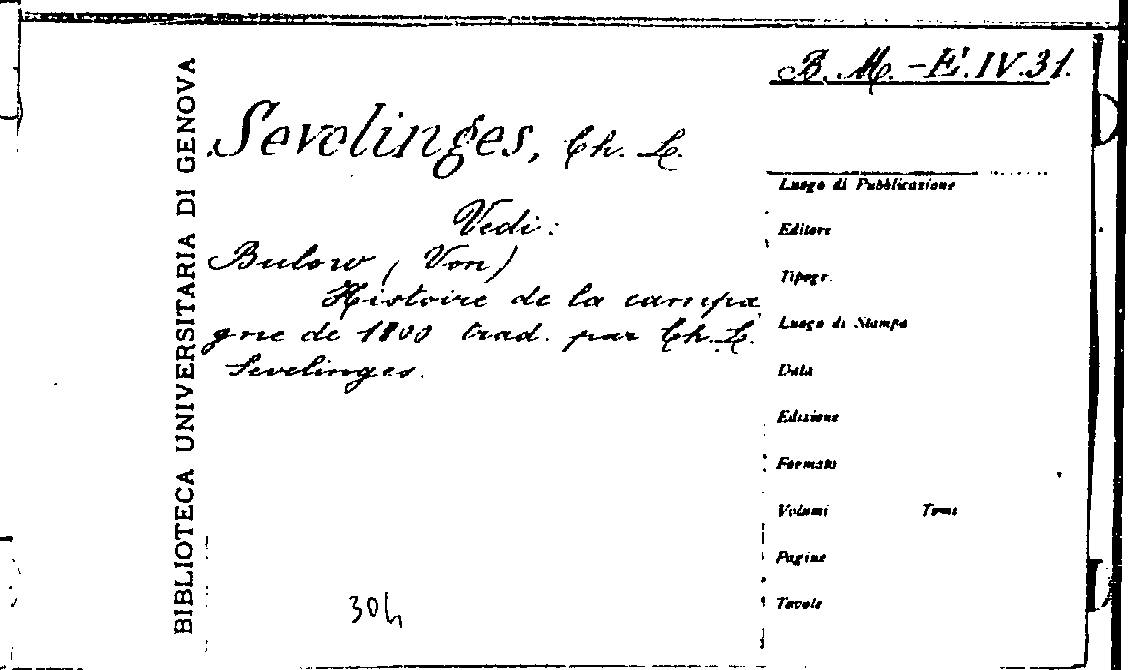 B. M. - E. IV. 31.
BIBLIOTECA UNIVERSITARIA DI GENOVA
Sevelinges, Ch. L.
Vedi:
Bulow (Von)
Histoire de la campa
gne de 1800 trad. par Ch. L.
Sevelinges.
304
Luogo di Pubblicazione
Editore
Tipogr.
Luogo di Stampa
Data
Edizione
Formato
Volumi Tomi
Pagine
Tavole